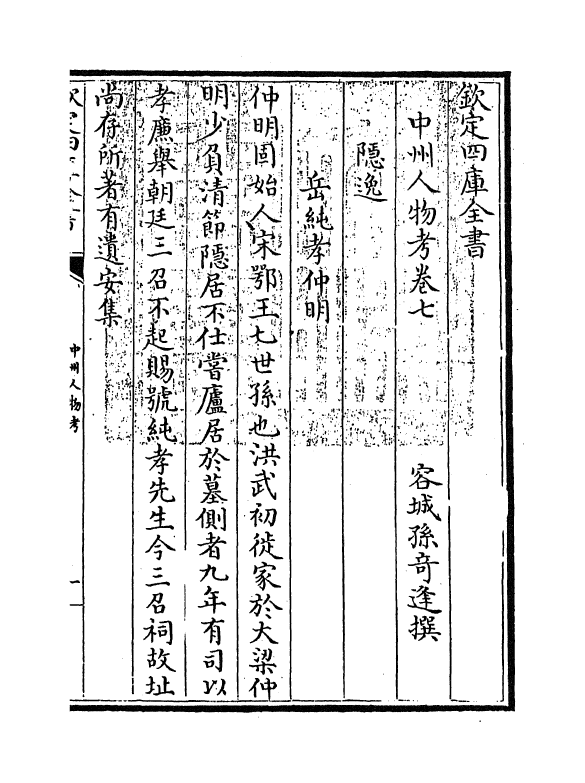 欽定四庫全書
中州人物考卷七
容城孫竒逢撰
隠逸
岳純孝仲明
仲明固始人宋鄂王七世孫也洪武初徙家於大梁仲
明少負清節隠居不仕嘗廬居於墓側者九年有司以
孝廉舉朝廷三召不起賜號純孝先生今三召祠故址
尚存所著有遺安集
中州人物考
一